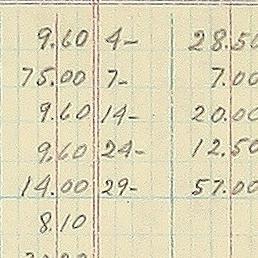 9.60 4- 28.50
75.00 7- 7.00
9.60 14- 20.00
9.60 24- 12.50
14.00 29- 57.00
8.10